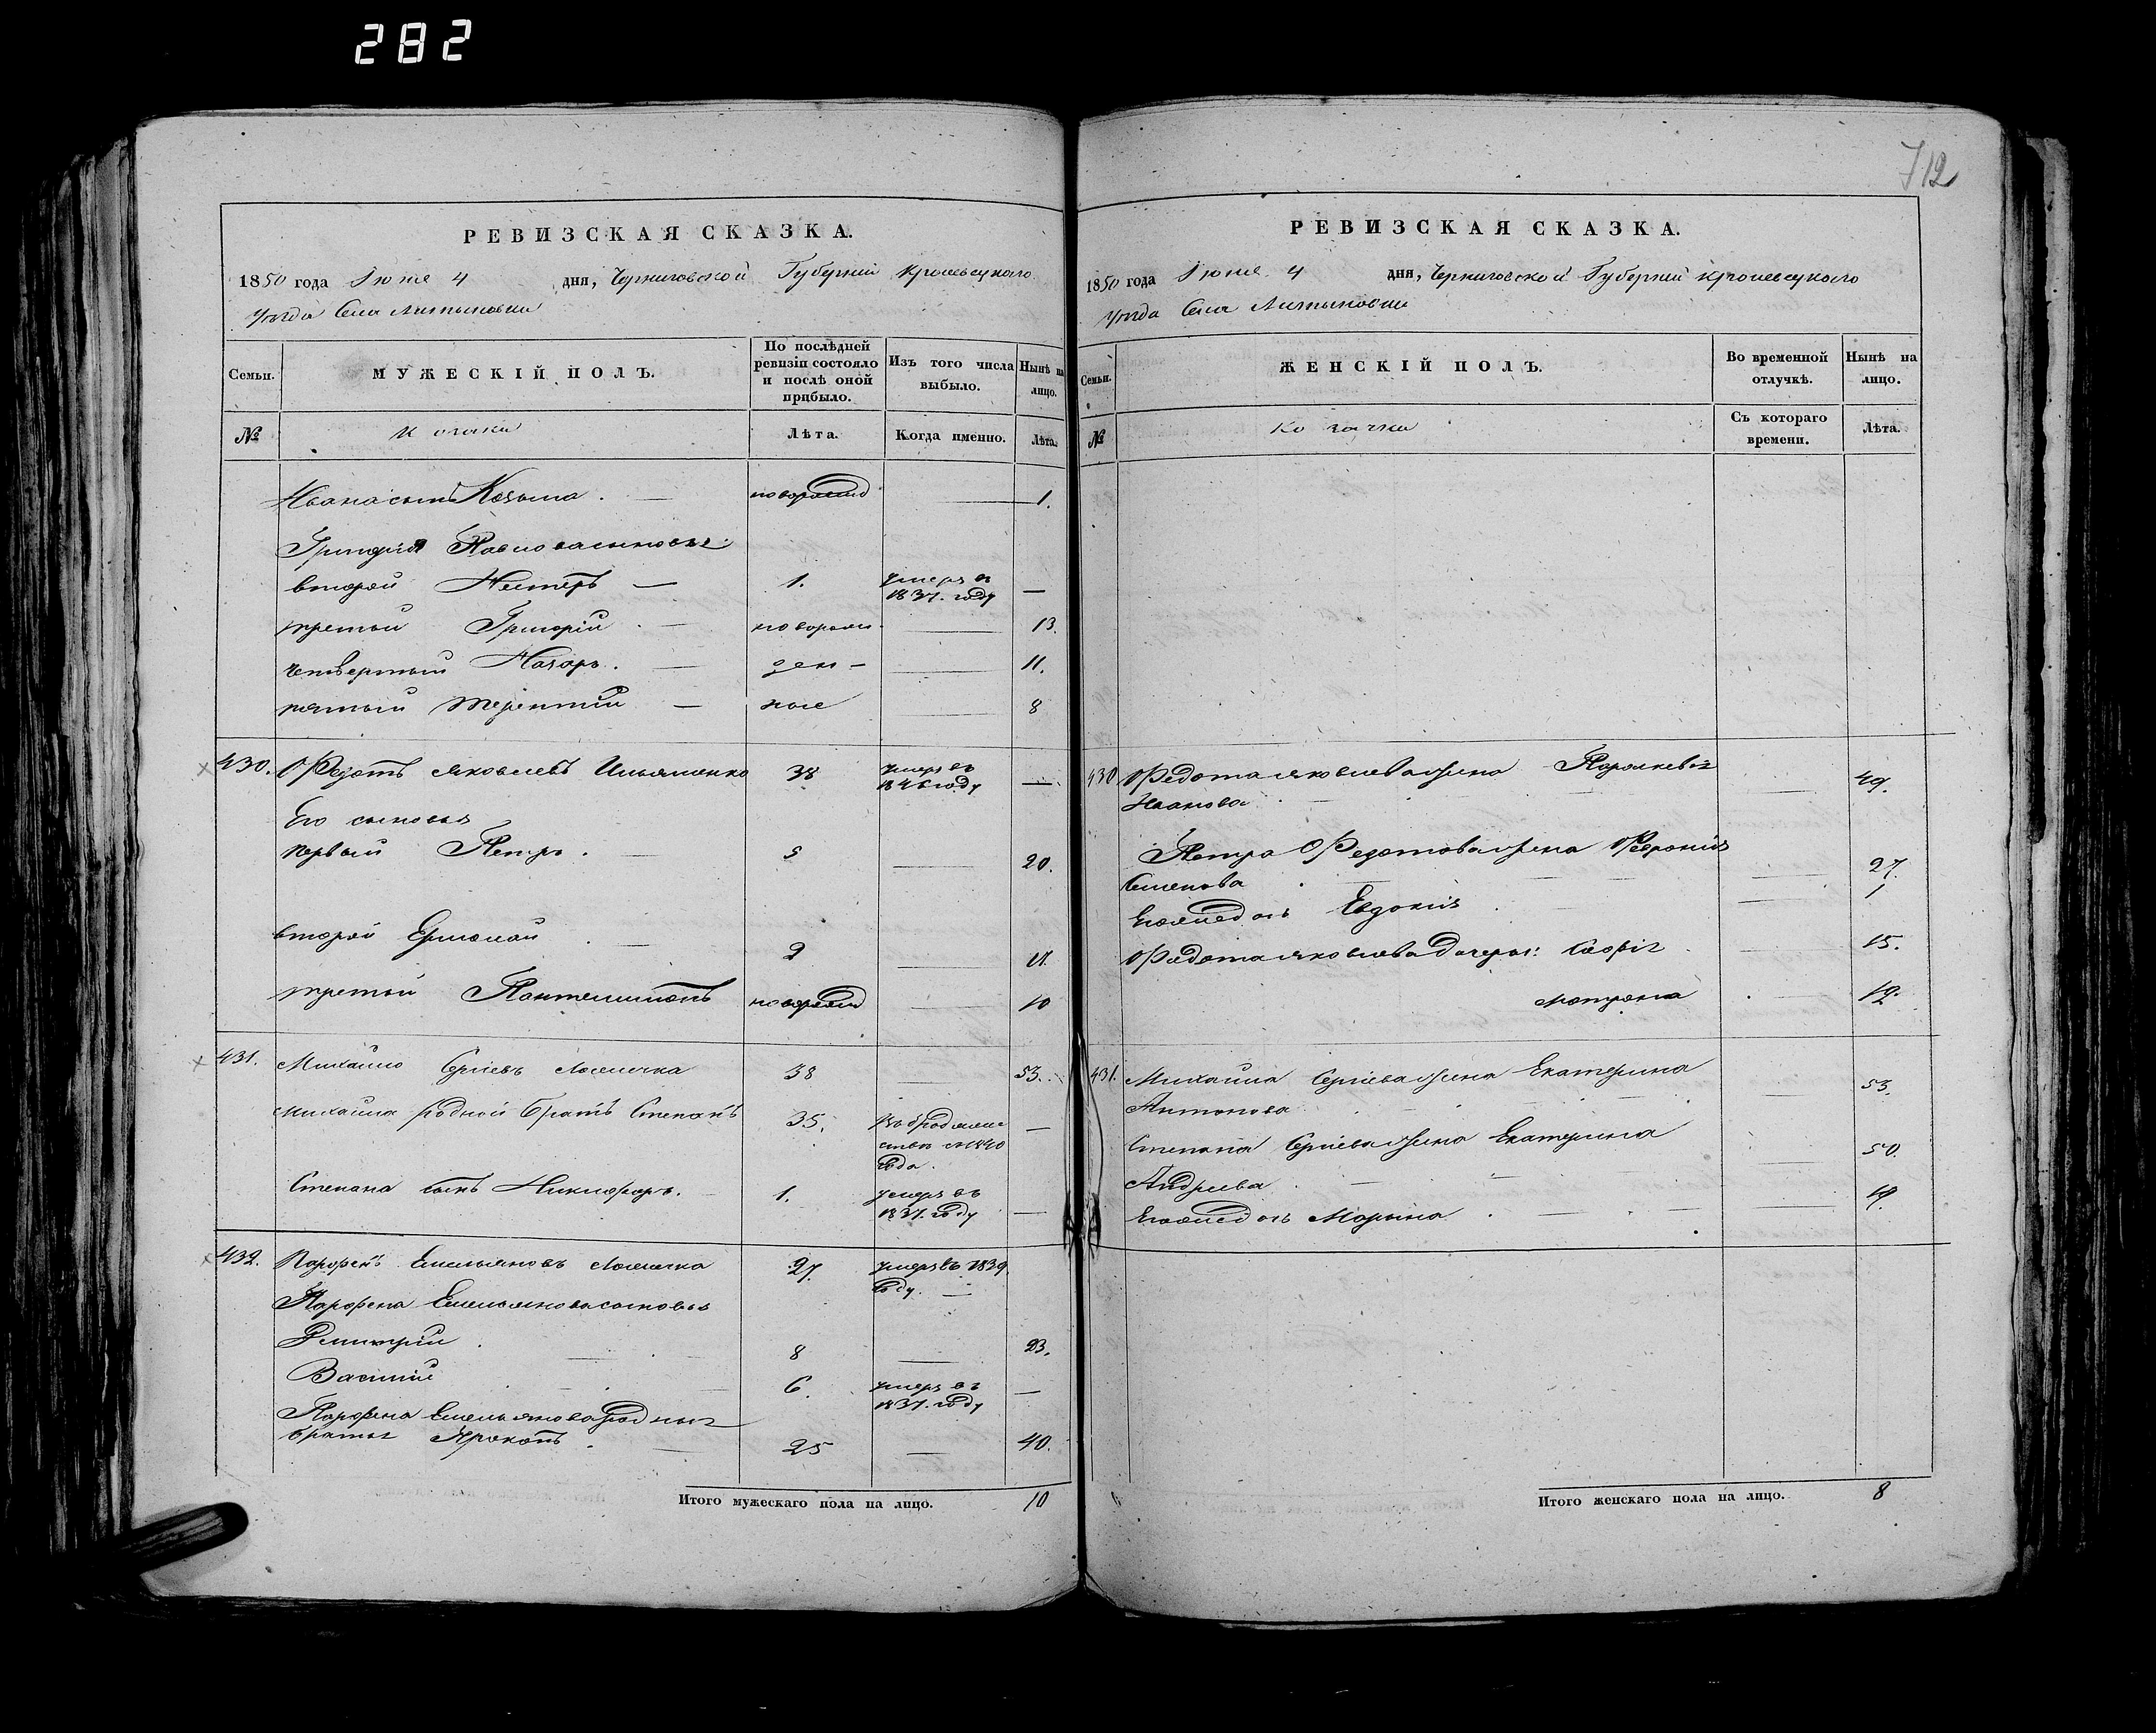 282
712
РЕВИЗСКАЯ СКАЗКА.
1850 года Июня 4 дня, Черниговской Губернии Кролевецкаго
Уезда Села Литвиновки
Семьи.
МУЖЕСКІЙ ПОЛЪ.
По послѣдней ревизіи состояло и послѣ оной прибыло.
Изъ того числа выбыло.
Нынѣ на лицо.
№
Козаки
Лѣта.
Когда именно.
Лѣта.
Ивана сынъ Козьма . — новорожд — 1.
Григорія сыновья
второй Нестеръ — 1. умеръ в 1837. году —
третій Григорій . — новорож — 13.
четвертый Назаръ . — ден — 11.
пятый Терентій — ные — 8
430. Федотъ Яковлевъ Ильяшенко 38 умеръ въ 1846 году —
Его сыновья
первый Петръ . — 5 — 20.
второй Ермолай . — 2 — 17.
третій Пантелимонъ новорожд — 10
431. Михайло Сергіевъ 38 53.
Михайла родной братъ Степанъ 35. въ бродяжествѣ с 1840 года. —
Степана сынъ Никифоръ. 1. умеръ въ 1837. году —
432. Парфенъ Емельяновъ 27. умеръ въ 1839 году. —
Парфена Емельянова сыновья
Дмитрій . 8 — 23.
Василій 6. умеръ въ 1837. году —
Парфена Емельянова родные
братья Прокопъ . — 25 — 40.
Итого мужескаго пола на лицо. 10
РЕВИЗСКАЯ СКАЗКА.
1850 года Июня 4 дня, Черниговской Губерніи Кролевецкаго
Уезда Села Литвиновки
Семьи.
ЖЕНСКІЙ ПОЛЪ.
Во временной отлучкѣ.
Нынѣ на лицо.
№
Козачки
Съ котораго времени.
Лѣта.
430 Федота Яковлева жена
Иванова . — — 49.
Петра Федотова жена Февронія
Семенова . — — 27.
Его дочь Евдокія . — 1
Федота Яковлева дочери: Софія . — 15.
Мотрона . — 12.
431. Михайла Сергіева жена Екатерина
Антонова . — 53.
Степана Сергіева жена Екатерина
Андреева . — 50.
Его дочь Марина . — 19.
Итого женскаго пола на лицо. 8